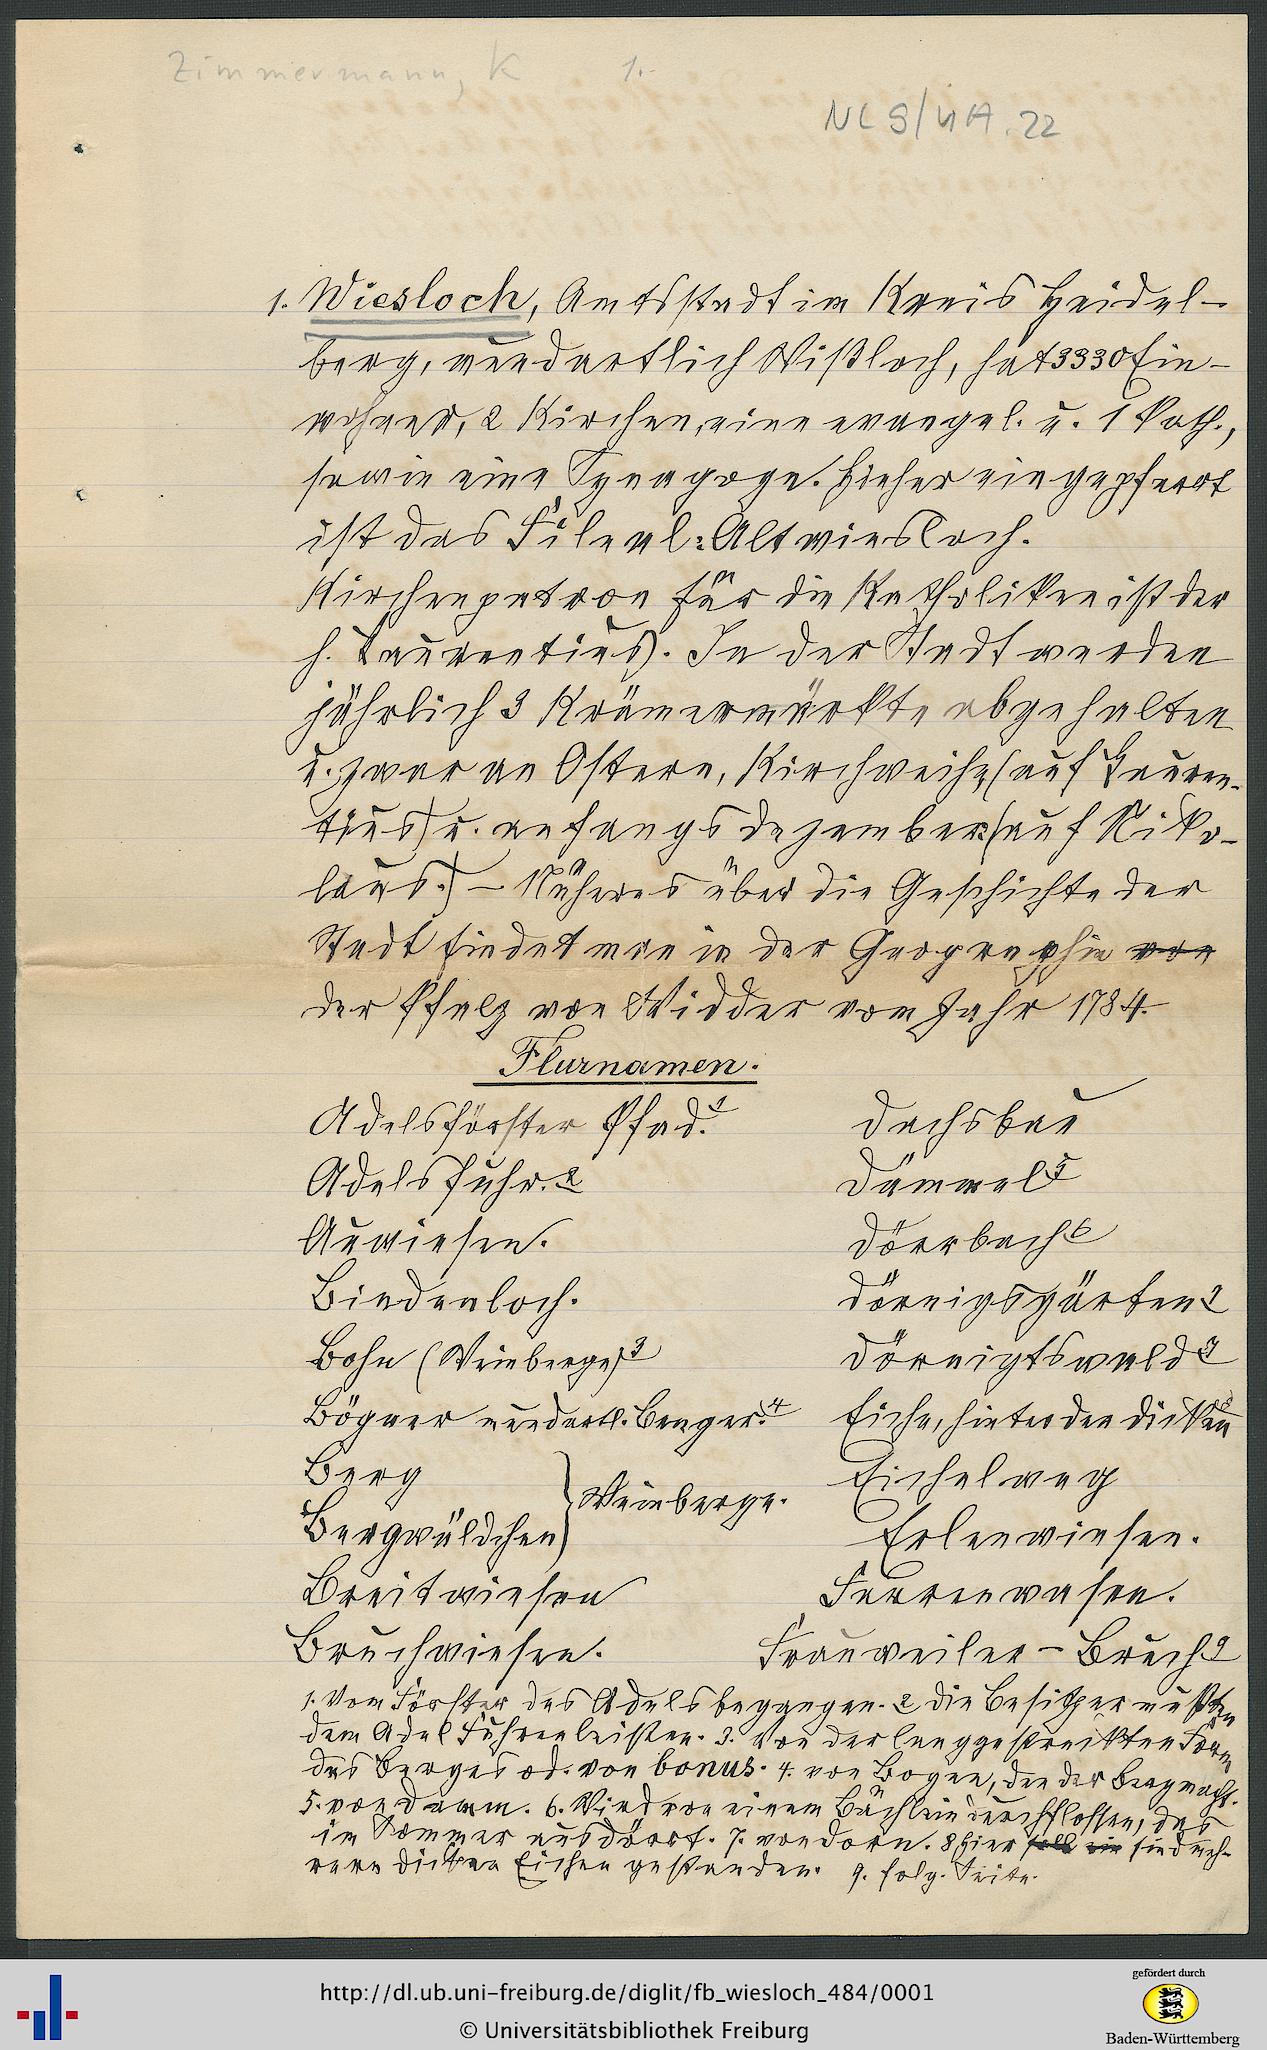 Zimmermann, K 1.
NLS/UA. 22
1. Wiesloch, Amtsstadt im Kreis Heidel-
berg, mundartlich Wißloch, hat 3330 Ein-
wohner, 2 Kirchen, eine evangel. u. 1 kath.,
sowie eine Synagoge. Hieher eingepfarrt
ist das Filial: Altwiesloch.
Kirchenpatron für die Katholiken ist der
h. Laurentius). In der Stadt werden
jährlich 3 Krämermärkte abgehalten
u. zwar an Ostern, Kirchweihe, (auf Lauren-
tius) u. anfangs Dezember (auf Niko-
laus.) – Näheres über die Geschichte der
Stadt findet man in der Geographie von
der Pfalz von Widder vom Jahr 1784.
Flurnamen.
Adelsförster Pfad.1 Dachsbau
Adelsfuhr.2 Dämmel5
Auwiesen. Dörrbach6
Bindenloch. Dörnigsgärten7
Bohn (Weinberge)3 Dörnigtswald7
Bögner mundartl. Benger.4 Eiche, hinter den dicken8
Berg Eichelweg
Bergwäldchen } Weinberge. Erlenwiesen.
Breitwiesen Farrenwasen.
Bruchwiesen. Frauweiler-Bruch9
1. Vom Förster des Adels begangen. 2 Die Besitzer mußten
dem Adel Fuhren leisten. 3. Von der langgestreckten Form
des Berges od. von bonus. 4. von Bogen, den der Berg macht.
5. von Damm. 6. Wird von einem Bächlein durchflossen, das
im Sommer ausdörrt. 7. von Dorn. 8 Hier soll ein sind meh-
rere dicken Eichen gestanden. 9. folg. Seite.
http://dl.ub.uni-freiburg.de/diglit/fb_wiesloch_484/0001
© Universitätsbibliothek Freiburg
gefördert durch
Baden-Württemberg